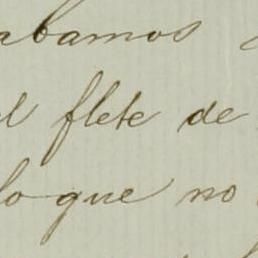 abamos
el flete de
lo que no